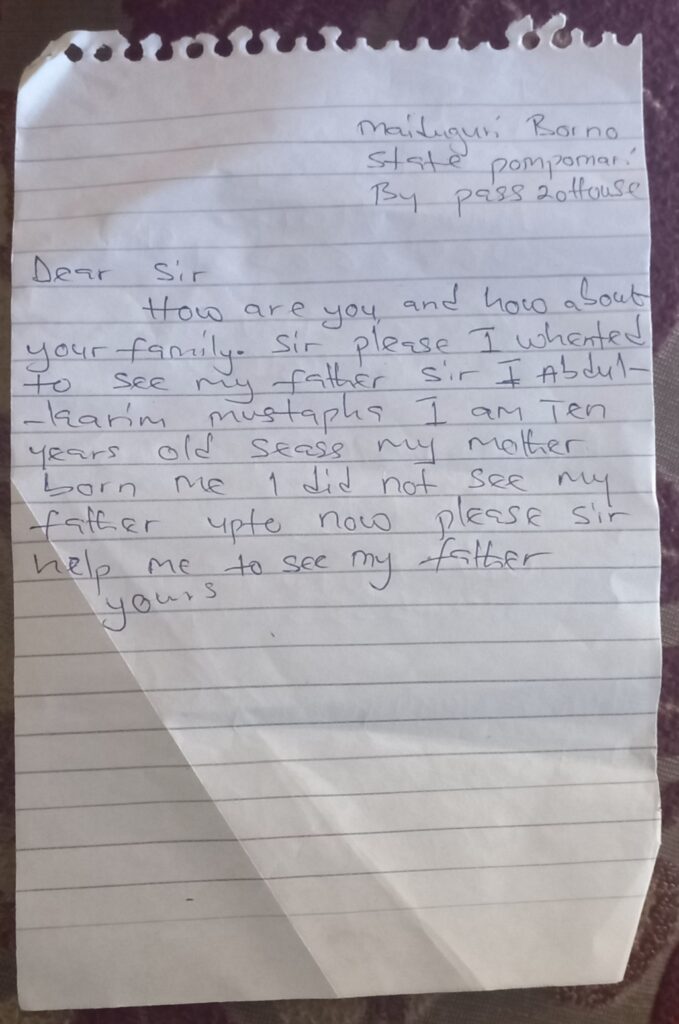 Maiduguri Borno
State pompomari
By pass 20House
Dear Sir
How are you, and how about
your family. Sir please I whented
to see my father Sir I Abdul-
-kaarim mustapha I am Ten
years old seass my mother
born me I did not see my
father upto now please sir
help me to see my father
yours